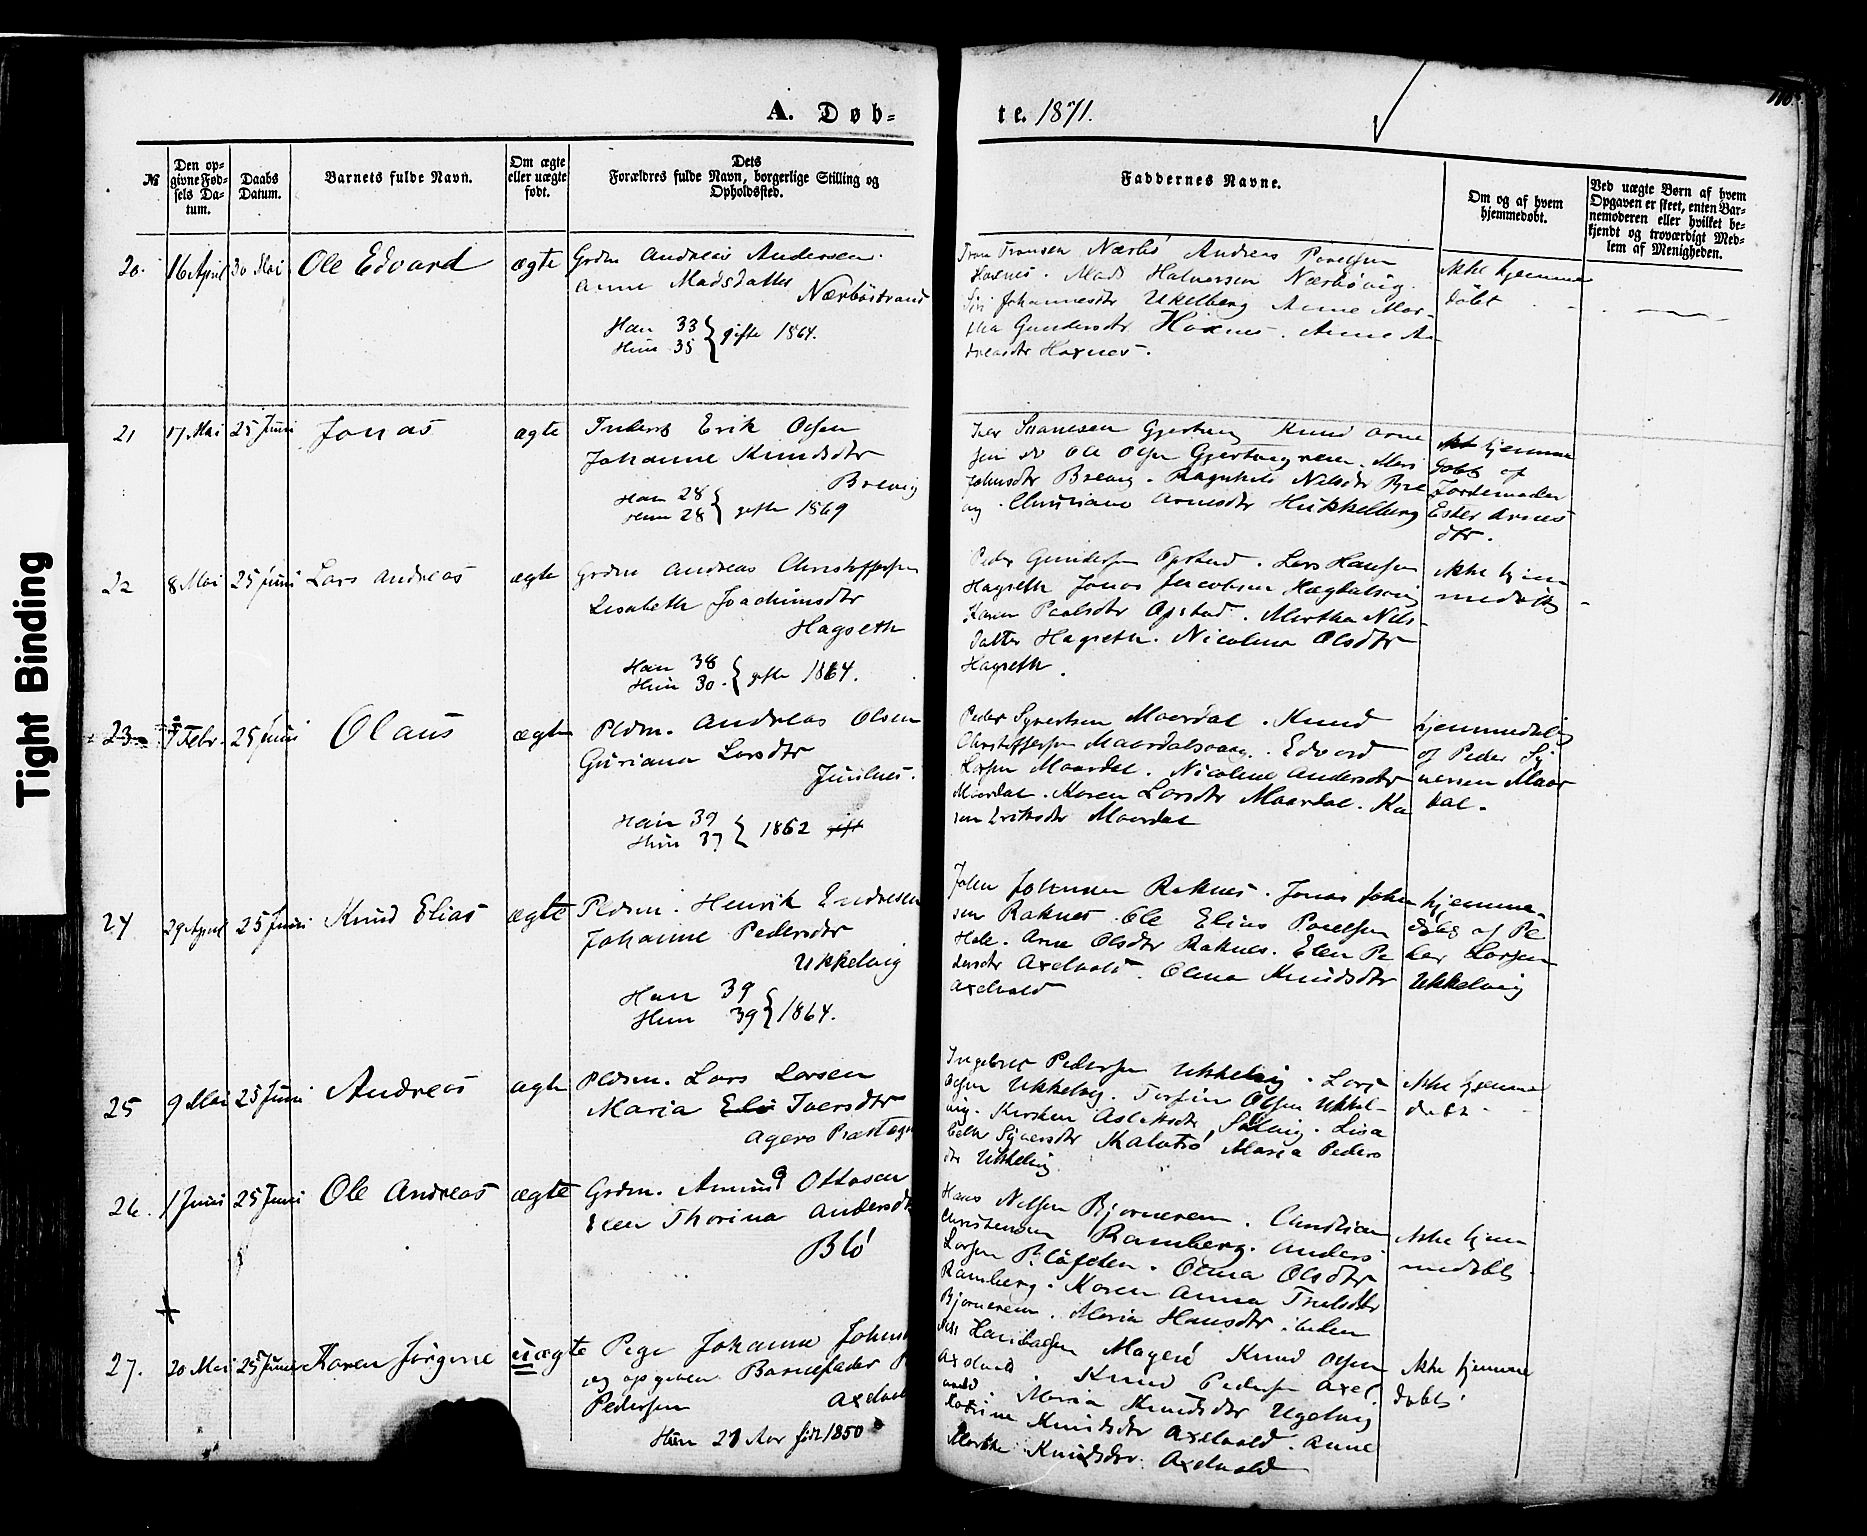 Tight Binding
A. Døb-
te. 1871.
№
Den op-
givne Fød-
sels Da-
tum.
Daabs
Datum.
Barnets fulde Navn.
Om ægte
eller uægte
født.
Dets
Forældres fulde Navn, borgerlige Stilling og
Opholdssted.
Faddernes Navne.
Om og af hvem
hjemmedøbt.
Ved uægte Børn af hvem
Opgaven er skeet, enten Bar-
nemoderen eller hvilket be-
kjendt og troværdigt Med-
lem af Menigheden.
20. 16 April 30 Mai Ole Edvard ægte Grdm Andreas Andersen.
Anne Madsdatter
Nærböstrand
Han 33
Hun 35 gifte 1864.
Nærbö Andreas Povelsen
Haxnes. Mads Halvorsen Nærbövig
Siri Johannesdtr Ukelberg Anne Mar-
tha Gundersdtr Haxnes. Anne An-
dreasdtr Haxnes.
Ikke hjemme
döbt
21 17 Mai 25 Juni Jonas ægte Inders Erik Olsen
Johanne Knudsdtr
Brevig
Han 28
Hun 28 gifte 1869
Iver Gjertvig Knud Arne
sen Ole Olsen
Johnsdtr Brevig. Ragnhild Nilsdtr Bre
vig. Christiane Arnesdtr Hukkelberg
hjemme
döbt af
Jordemoder
Ester Arnes
dtr.
22 8 Mai 25 Juni Lars Andreas ægte Grdm Andreas Christoffersen
Lisabeth Joachimsdtr
Hagseth
Han 38
Hun 30. gifte 1864.
Peder Gundersen Opstad. Lars Hansen
Hagseth Jonas Jacobsen
Karen Paalsdtr Opstad. Martha Nils-
datter Hagseth. Nicolina Olsdtr
Hagseth.
Ikke hjem
medöbt
23 7 Febr. 25 Juni Olaus ægte Pldm. Andreas Olsen
Guriana Larsdtr
Juulnes.
Han 39
Hun 37 1862 gift
Peder Syvertsen Maardal. Knud
Christoffersen Maardalsvaag. Edvard
Maardal. Nicoline Andersdtr
Maardal. Karen Larsdtr Maardal. Ka
ren Eriksdtr Maardal
hjemmedöbt
af Peder Sy
versen Maar
dal.
24 29 April 25 Juni Knud Elias ægte Pldm. Henrik Endresen
Johanne Pedersdtr
Ukkelvig
Han 39
Hun 39 1864.
John Johnsen Raknes. Jonas John
sen Raknes. Ole Elias Povelsen
Hole. Arna Olsdtr Raknes. Elen Pe
dersdtr Axelvold. Olena Knudsdtr
Axelvold
hjemme-
döbt af Pe
der Larsen
Ukkelvig
25 9 Mai 25 Juni Andreas ægte Pldm. Lars Larsen
Maria Eli Iversdtr
Agerö Præstegrd
Ingebret Pedersen Ukkelvig. Lars
Olsen Ukkelvig. Torfin Olsen Ukkel-
vig. Kirsten Aslaksdtr Solvig. Lisa
beth Syversdtr Kalvtrö Maria Peders
dtr Ukkelvig
Ikke hjemme
döbt.
26. 1 Juni 25 Juni Ole Andreas ægte Grdm. Amund Ottosen
Elen Thorina Andersdtr
Blö
Hans Nilsen Bjornerem. Christian
Christensen Ramberg. Anders
Larsen. Olena Olsdtr
Ramberg. Karen Anna Truelsdtr
Bjornerem. Maria Hansdtr ibidem
Ikke hjem
medöbt
27. 20 Mai 25 Juni Karen Jörgine uægte Pige Johanne Johns
og opgiven Barnefader
Pedersen Axelvold
Hun 21 Aar född 1850
Magerö Knud Olsen
Axelvold. Knud Pedersen Axel
vold. Maria Knudsdtr Ugelvig
Katrine Knudsdtr Axelvold. Anne
Marthe Knudsdtr. Axelvold
Ikke hjemme
döbt